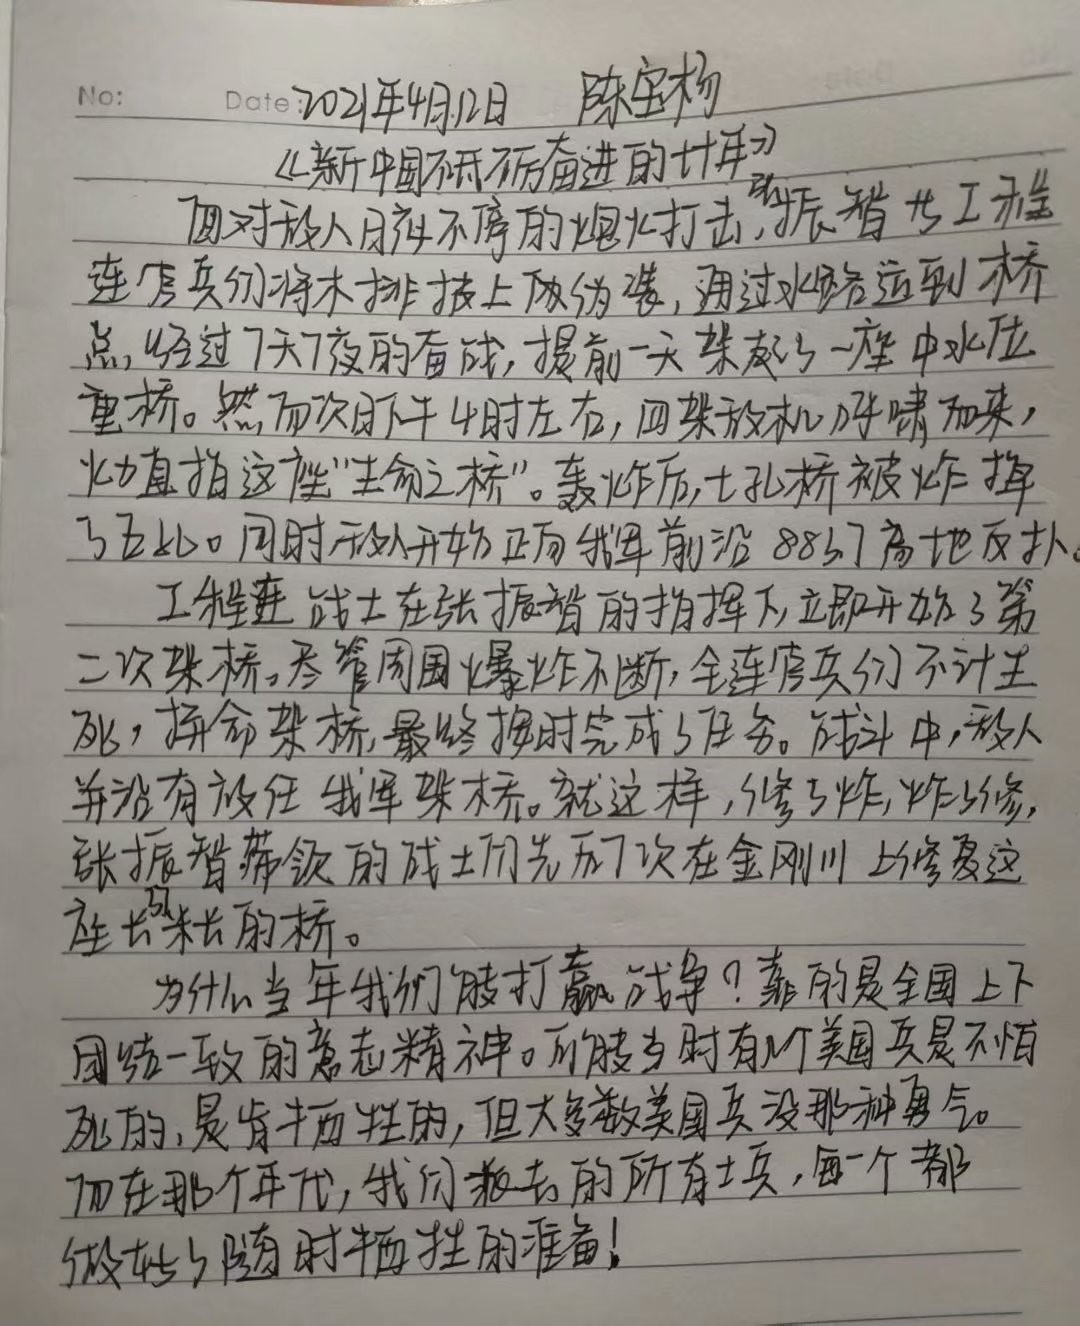 No: Date: 2021年4月12日 陈宝杨
《新中国砥砺奋进的七十年》
面对敌人日夜不停的炮火打击,张振智与工程
连官兵们将木排披上伪装,通过水路运到桥
点,经过7天7夜的奋战,提前一天架起了一座中水位
重桥。然而次日下午4时左右,四架敌机呼啸而来,
火力直指这座"生命之桥"。轰炸后,七孔桥被炸掉
了五孔。同时敌人开始正向我军前沿883.7高地反扑。
工程连战士在张振智的指挥下,立即开始了第
二次架桥。尽管周围爆炸不断,全连官兵们不计生
死,拼命架桥,最终按时完成了任务。战斗中,敌人
并没有放任我军架桥。就这样,修了炸,炸了修,
张振智带领的战士们先后7次在金刚川上修复这
座长米长的桥。
为什么当年我们能打赢战争?靠的是全国上下
团结一致的意志精神。可能当时有几个美国兵是不怕
死的,是肯牺牲的,但大多数美国兵没那种勇气。
而在那个年代,我们派去的所有士兵,每一个都
做好了随时牺牲的准备!